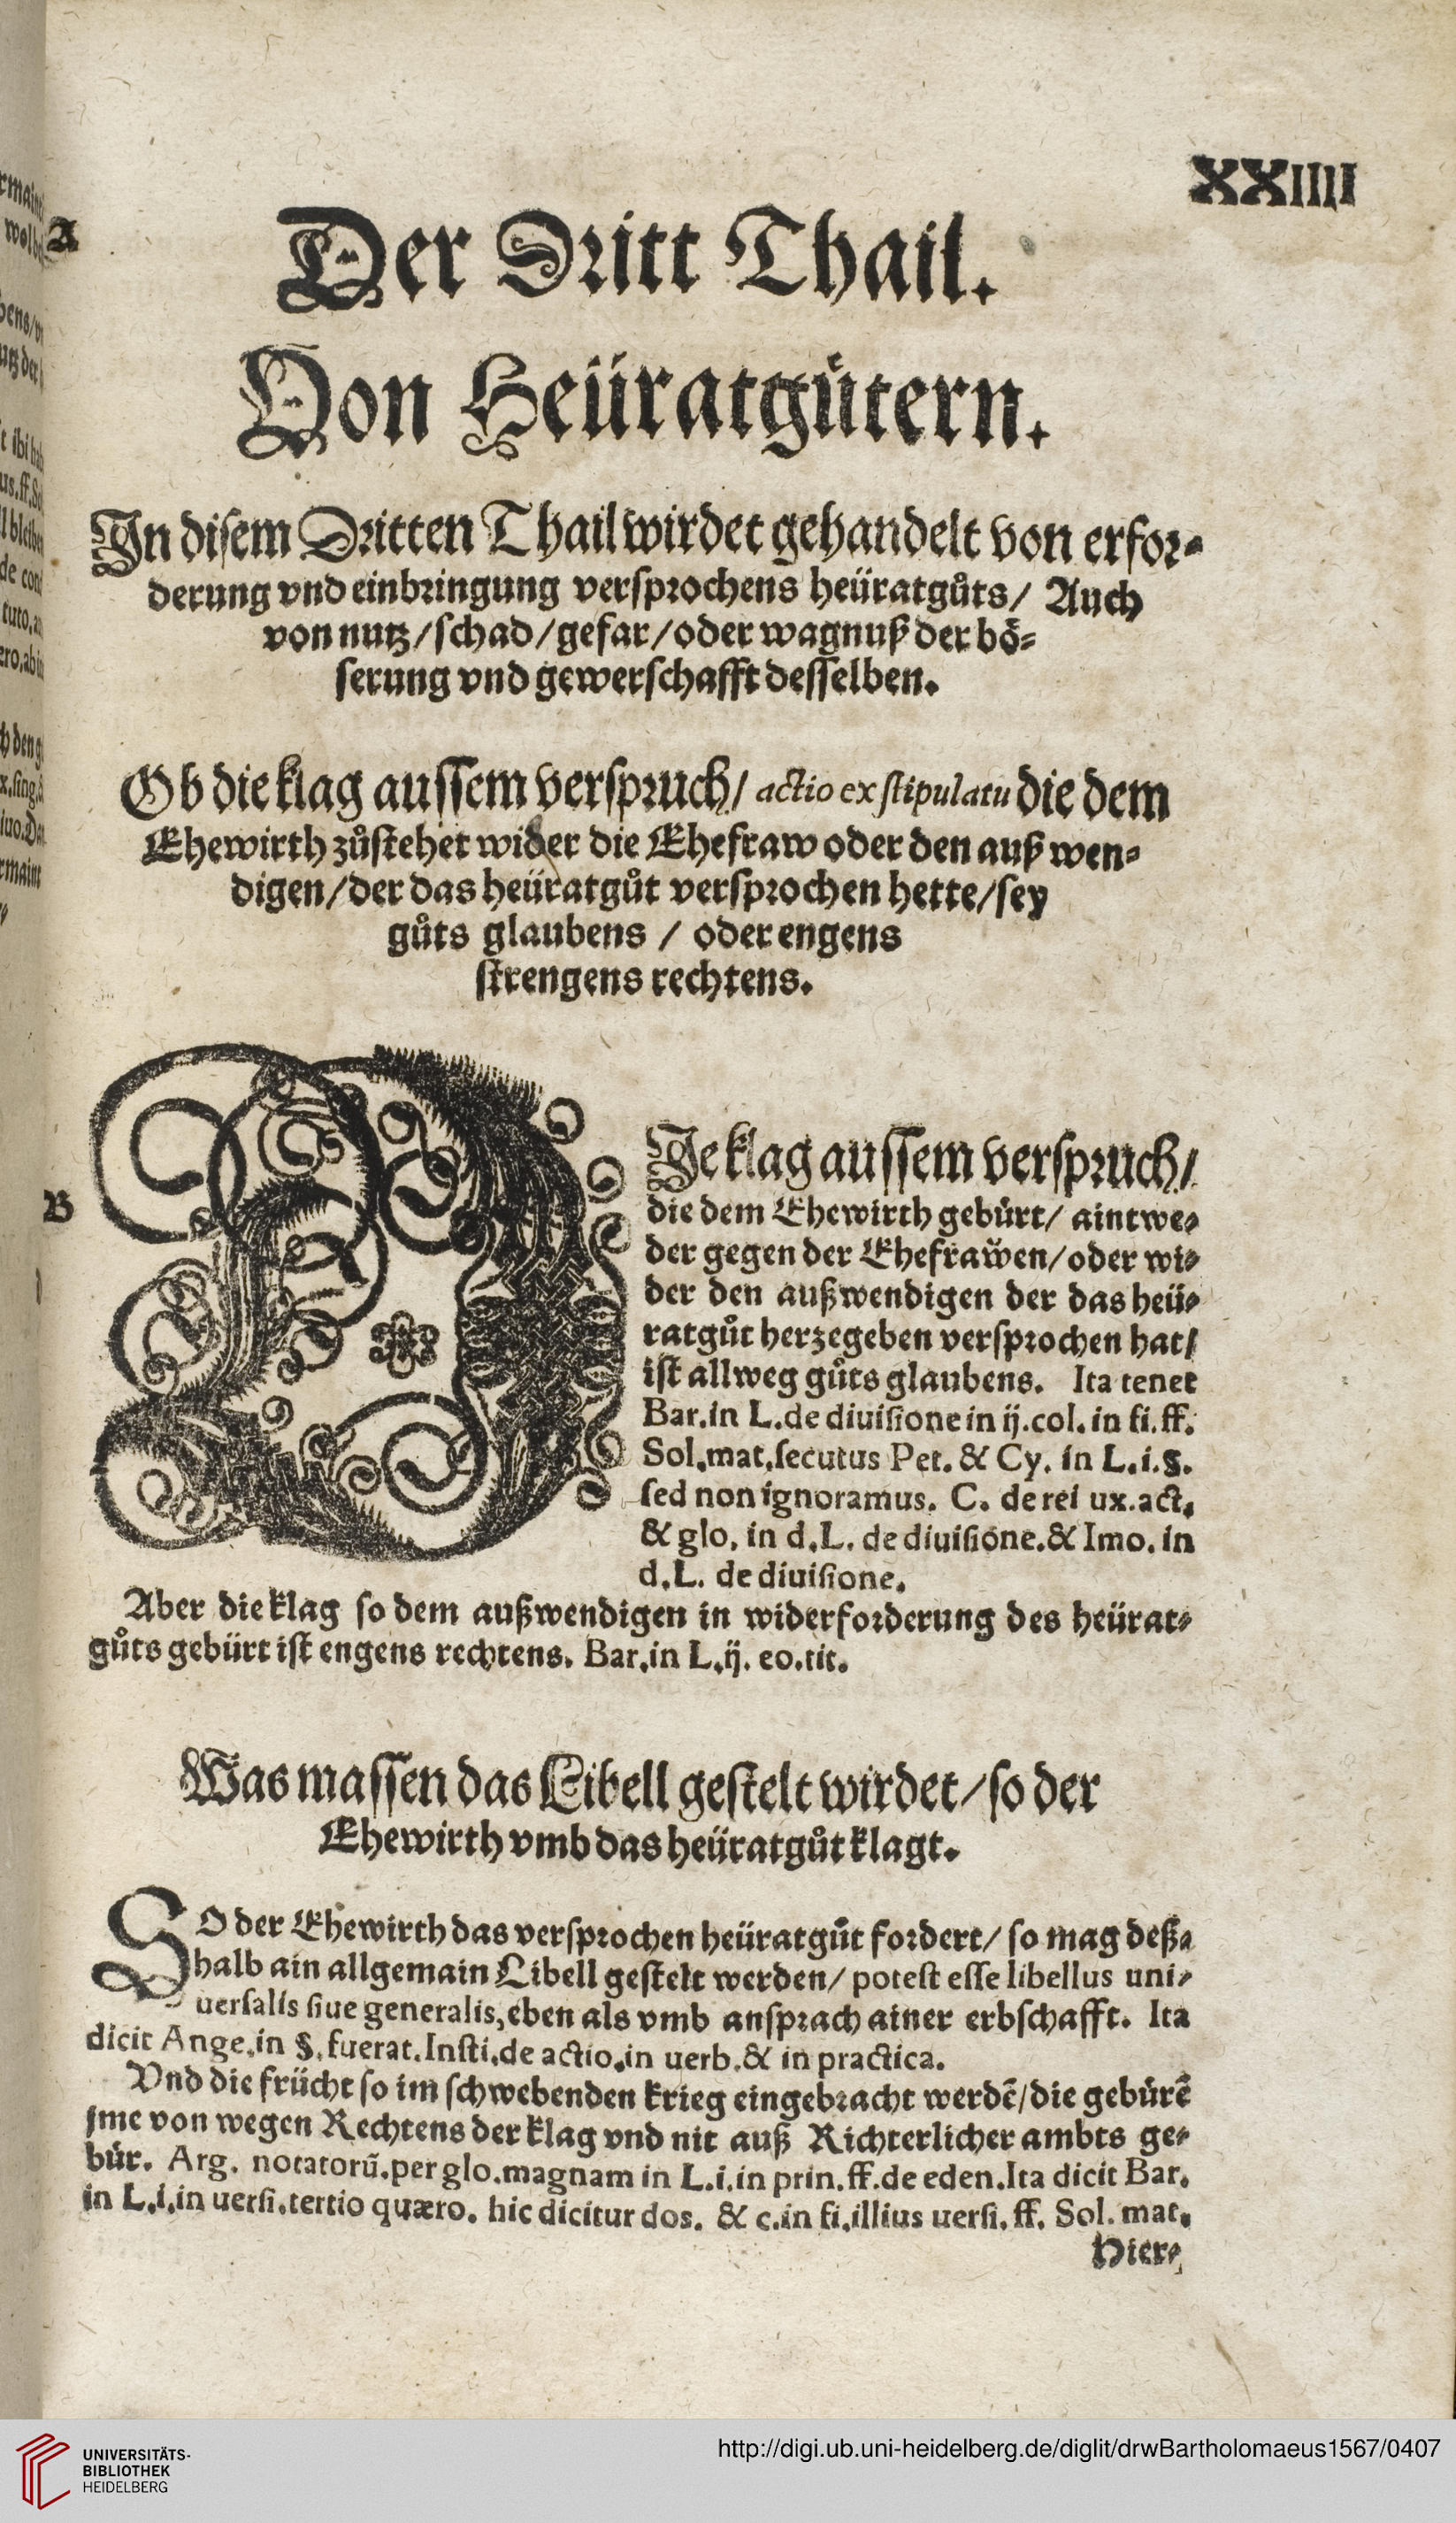 XXIIII
A
Der Dritt Thail.
Von Heüratgütern.
In disem Dritten Thail wirdet gehandelt von erfor⸗
derung vnd einbringung versprochens heüratgůts/ Auch
von nutz/schad/gefar/oder wagnuß der bö⸗
serung vnd gewerschafft desselben.
Ob die klag aussem verspruch/ actio ex stipulatu die dem
Ehewirth zůstehet wider die Ehefraw oder den außwen⸗
digen/der das heüratgůt versprochen hette/sey
gůts glaubens / oder engens
strengens rechtens.
B
DIe klag aussem verspruch/
die dem Ehewirth gebürt/ aintwe⸗
der gegen der Ehefrawen/oder wi⸗
der den außwendigen der das heü⸗
ratgůt herzegeben versprochen hat/
ist allweg gůts glaubens. Ita tenet
Bar.in L.de diuisione in ij.col.in fi.ff.
Sol.mat.secutus Pet. & Cy. in L.i.§.
sed non ignoramus. C. de rei ux.act.
& glo. in d.L. de diuisione.& Imo. in
d.L. de diuisione.
Aber die klag so dem außwendigen in widerforderung des heürat⸗
gůts gebürt ist engens rechtens. Bar.in L.ij. eo.tit.
Was massen das Libell gestelt wirdet/so der
Ehewirth vmb das heüratgůt klagt.
SO der Ehewirth das versprochen heüratgůt fordert/ so mag deß⸗
halb ain allgemain Libell gestelt werden/ potest esse libellus uni⸗
uersalis siue generalis,eben als vmb ansprach ainer erbschafft. Ita
dicit Ange.in §.fuerat.Insti.de actio.in uerb.& in practica.
Vnd die frücht so im schwebenden krieg eingebracht werdē/die gebürē
jme von wegen Rechtens der klag vnd nit auß Richterlicher ambts ge⸗
bür. Arg. notatorū.per glo.magnam in L.i.in prin.ff.de eden.Ita dicit Bar.
in L.i.in uersi.tertio quæro. hic dicitur dos. & c.in fi.illius uersi.ff. Sol. mat.
Hier⸗
UNIVERSITÄTS-
BIBLIOTHEK
HEIDELBERG
http://digi.ub.uni-heidelberg.de/diglit/drwBartholomaeus1567/0407